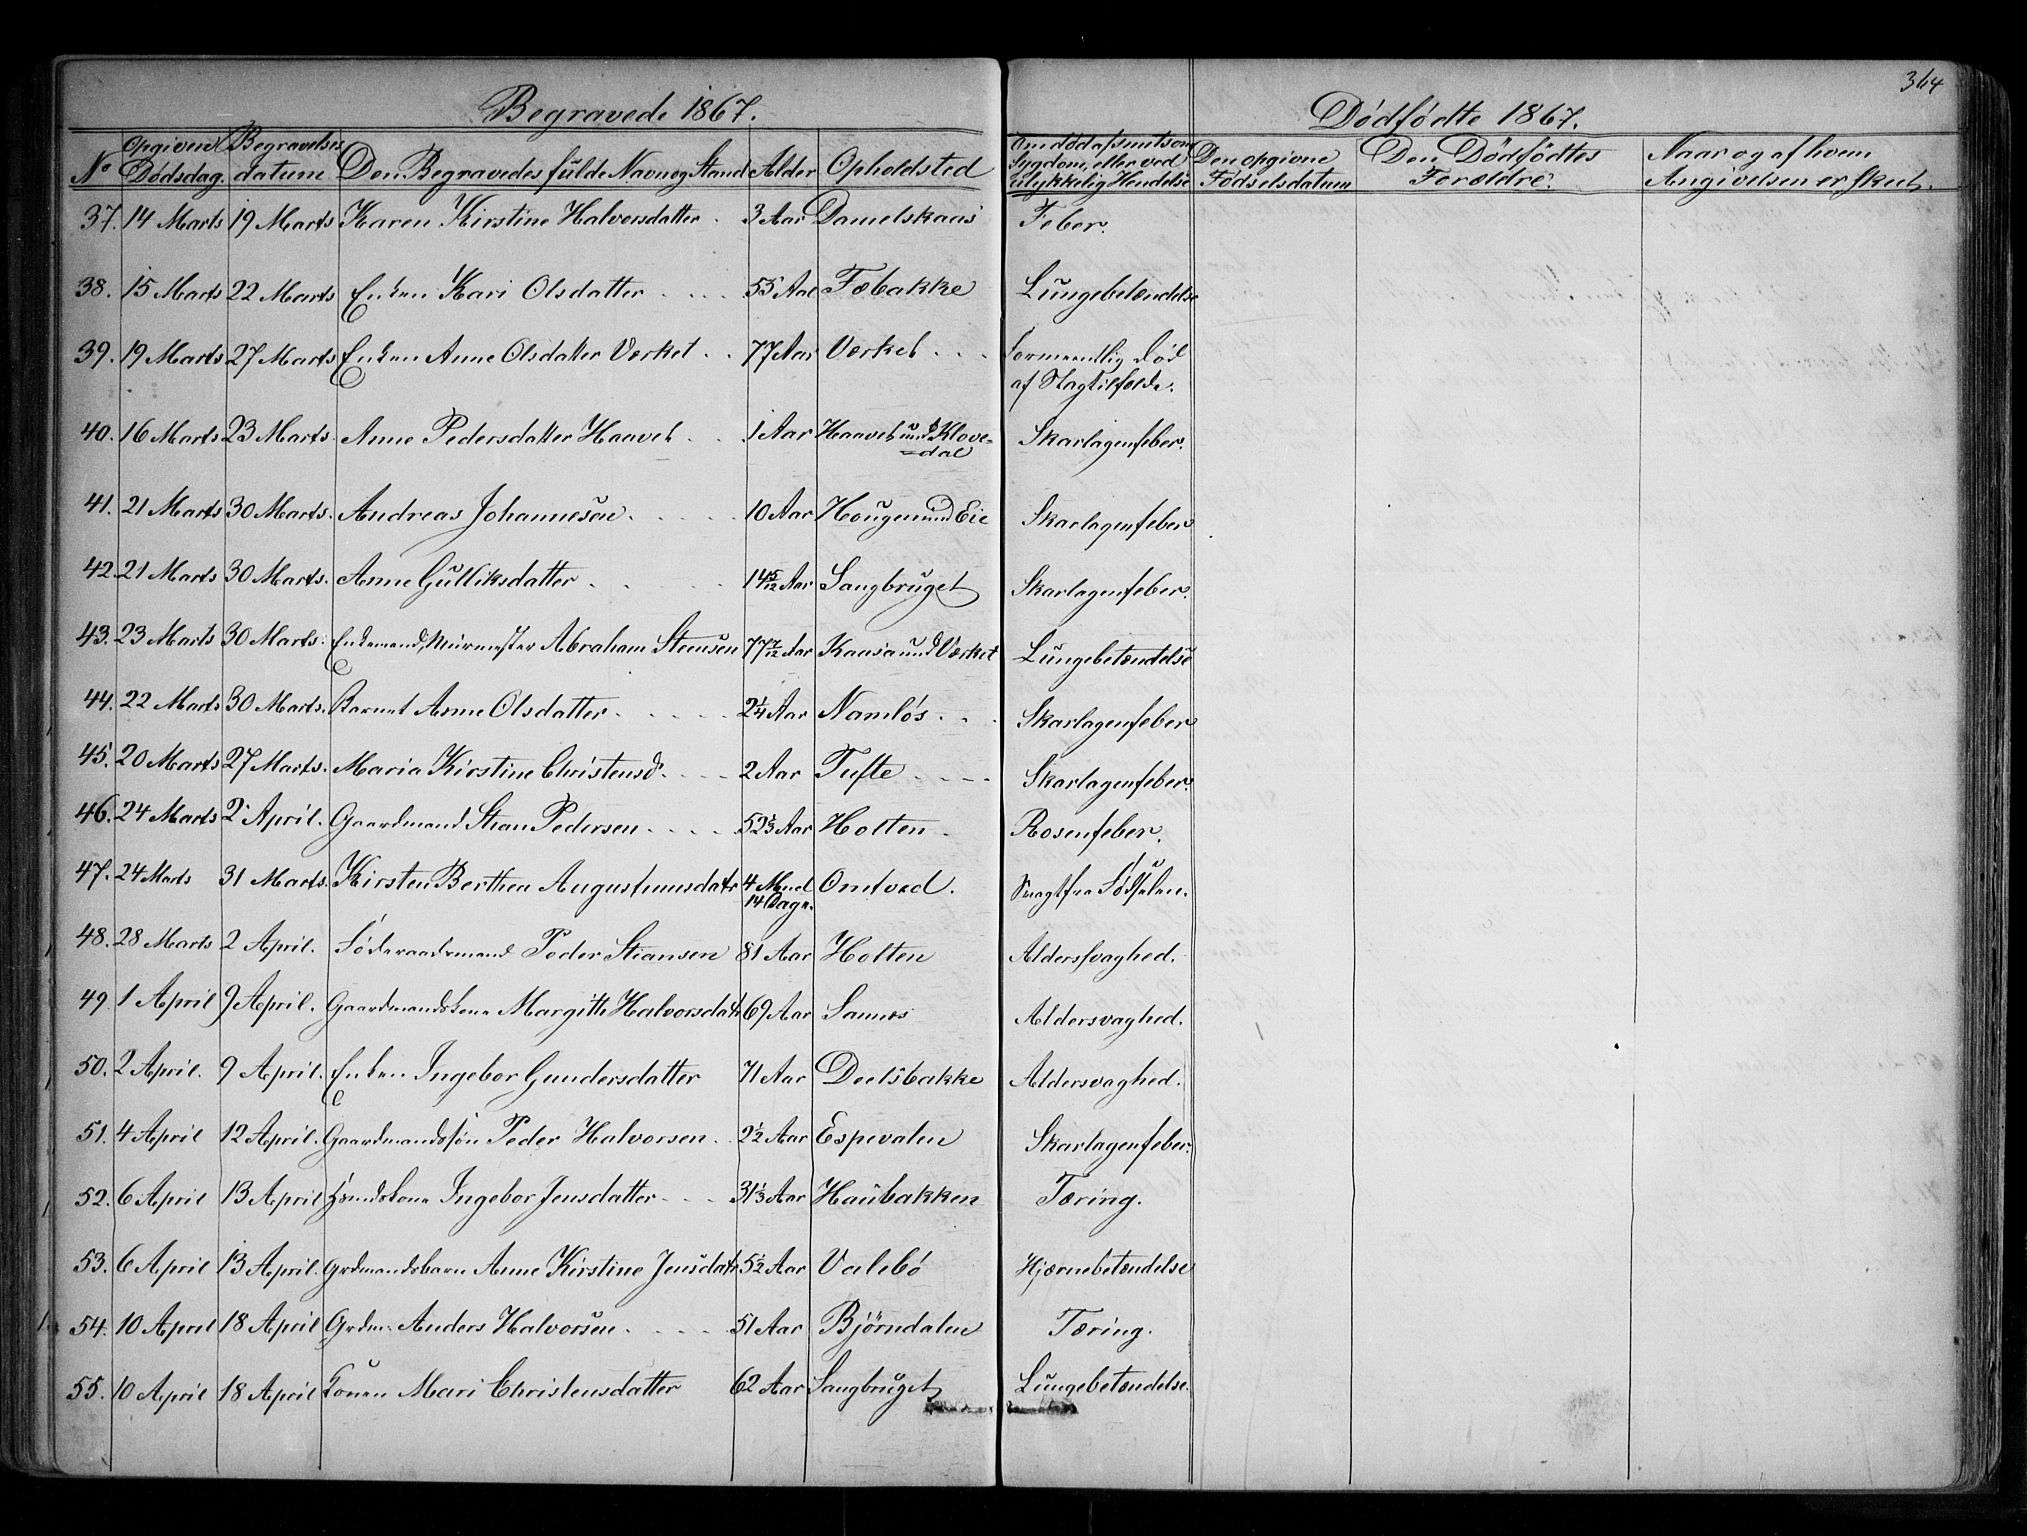 364
Begravede 1867.
Dødfødte 1867.
No Opgiven Dødsdag. Begravelses datum Den Begravedes fulde Navn og Stand Alder Opholdsted Om død af smitsom Sygdom, eller ved ulykkelig Hendelse Den opgivne Fødselsdatum Den Dødfødtes Forældre. Naar og af hvem Angivelsen er skeet.
37. 14 Marts 19 Marts Karen Kirstine Halvorsdatter. 3 Aar Danielskaas Feber.
38. 15 Marts 22 Marts Enken Kari Olsdatter .... 55 Aar Fæbakke Lungebetændelse
39. 19 Marts 27 Marts Enken Anne Olsdatter Værket .. 77 Aar Værket ... Formeentlig død
af Slagtilfælde.
40. 16 Marts 23 Marts. Anne Pedersdatter Haavet .. 1 Aar Haavet und Klove=
=dal Skarlagenfeber.
41. 21 Marts 30 Marts. Andreas Johannesøn ..... 10 Aar Hougen und Eie Skarlagenfeber
42. 21 Marts 30 Marts. Anne Gulliksdatter ... 14 5/12 Aar Saugbruget Skarlagenfeber.
43. 23 Marts 30 Marts. Enkemand, Muurmester Abraham Steensen 77 7/12 Aar Kaasa und Værket Lungebetændelse
44. 22 Marts 30 Marts. Barnet Anne Olsdatter ..... 2 1/4 Aar Namløs ... Skarlagenfeber
45. 20 Marts 27 Marts. Maria Kirstine Christensd. ... 2 Aar Tufte .... Skarlagenfeber.
46. 24 Marts 2 April. Gaardmand Stian Pedersen .... 52 1/3 Aar Holten. Rosenfeber.
47. 24 Marts 31 Marts. Kirsten Berthea Augustinusdatr 4 Mnd
14 Dage. Omtved. Svagt fra Fødselen.
48. 28 Marts 2 April. Føderaadsmand Peder Stiansen 81 Aar Holten Aldersvaghed.
49. 1 April 9 April. Gaardmandskone Margithe Halvorsdatr 69 Aar Sannes Aldersvaghed.
50. 2 April. 9 April. Enken Ingebor Gundersdatter 71 Aar Deelsbakke Aldersvaghed.
51. 4 April 12 April. Gaardmandssøn Peder Halvorsen. 2 1/2 Aar Espevalen Skarlagenfeber.
52. 6 April 13 April Ingebor Jensdatter ... 31 1/3 Aar Haubakken Tæring.
53. 6 April 13 April. Grdmandsbarn Anne Kirstine Jensdatr. 5 1/2 Aar Valebø Hjærnebetændelse
54. 10 April 18 April Grdm. Anders Halvorsen ..... 51 Aar Bjørndalen Tæring.
55. 10 April 18 April Konen Mari Christensdatter 62 Aar Saugbruget Lungebetændelse.